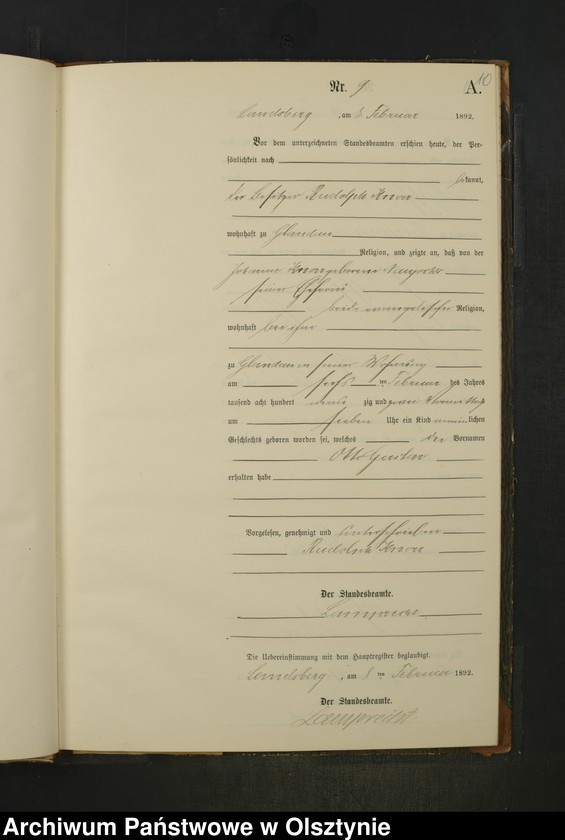 10
Nr. 9 A.
Landsberg, am 8 Februar 1892.
Vor dem unterzeichneten Standesbeamten erschien heute, der Per-
sönlichkeit nach
kannt,
der Besitzer Rudolph
wohnhaft zu Glandau
Religion, und zeigte an, daß von der
geborene
seiner Ehefrau
beide evangelischer Religion,
wohnhaft bei ihm
zu Glandau in seiner Wohnung
am sechsten Februar des Jahres
tausend acht hundert neunzig und zwei
um sieben Uhr ein Kind männlichen
Geschlechts geboren worden sei, welches den Vornamen
Otto Gustav
erhalten habe
Vorgelesen, genehmigt und unterschrieben
Rudolph
Der Standesbeamte.
Lamprecht
Die Uebereinstimmung mit dem Hauptregister beglaubigt.
Landsberg, am 8 ten Februar 1892.
Der Standesbeamte.
Lamprecht
Archiwum Państwowe w Olsztynie